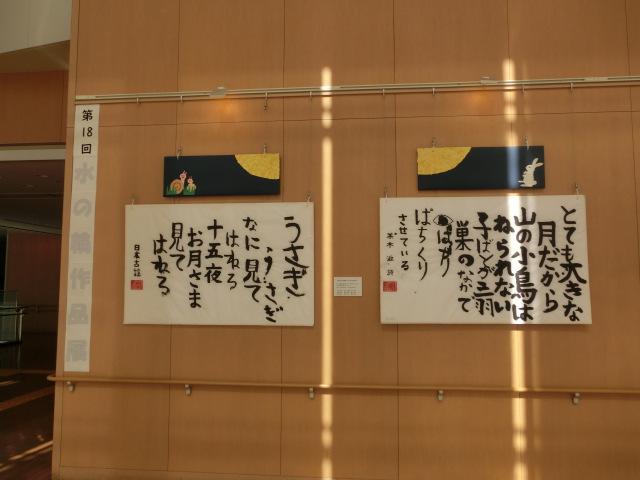 第18回
水の輪作品展
とても大きな
月だから
山の小鳥は
ねられない
子ばとが三羽
巣のなかで
ぱちくり
させている
茶木 滋 詩
うさぎ
うさぎ
なに見て
はねる
十五夜
お月さま
見て
はねる
日本古謡